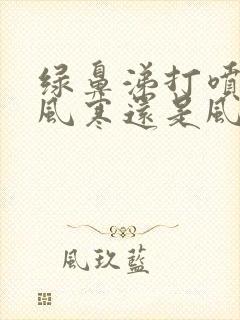 绿鼻涕打喷
风寒还是风
風玖藍